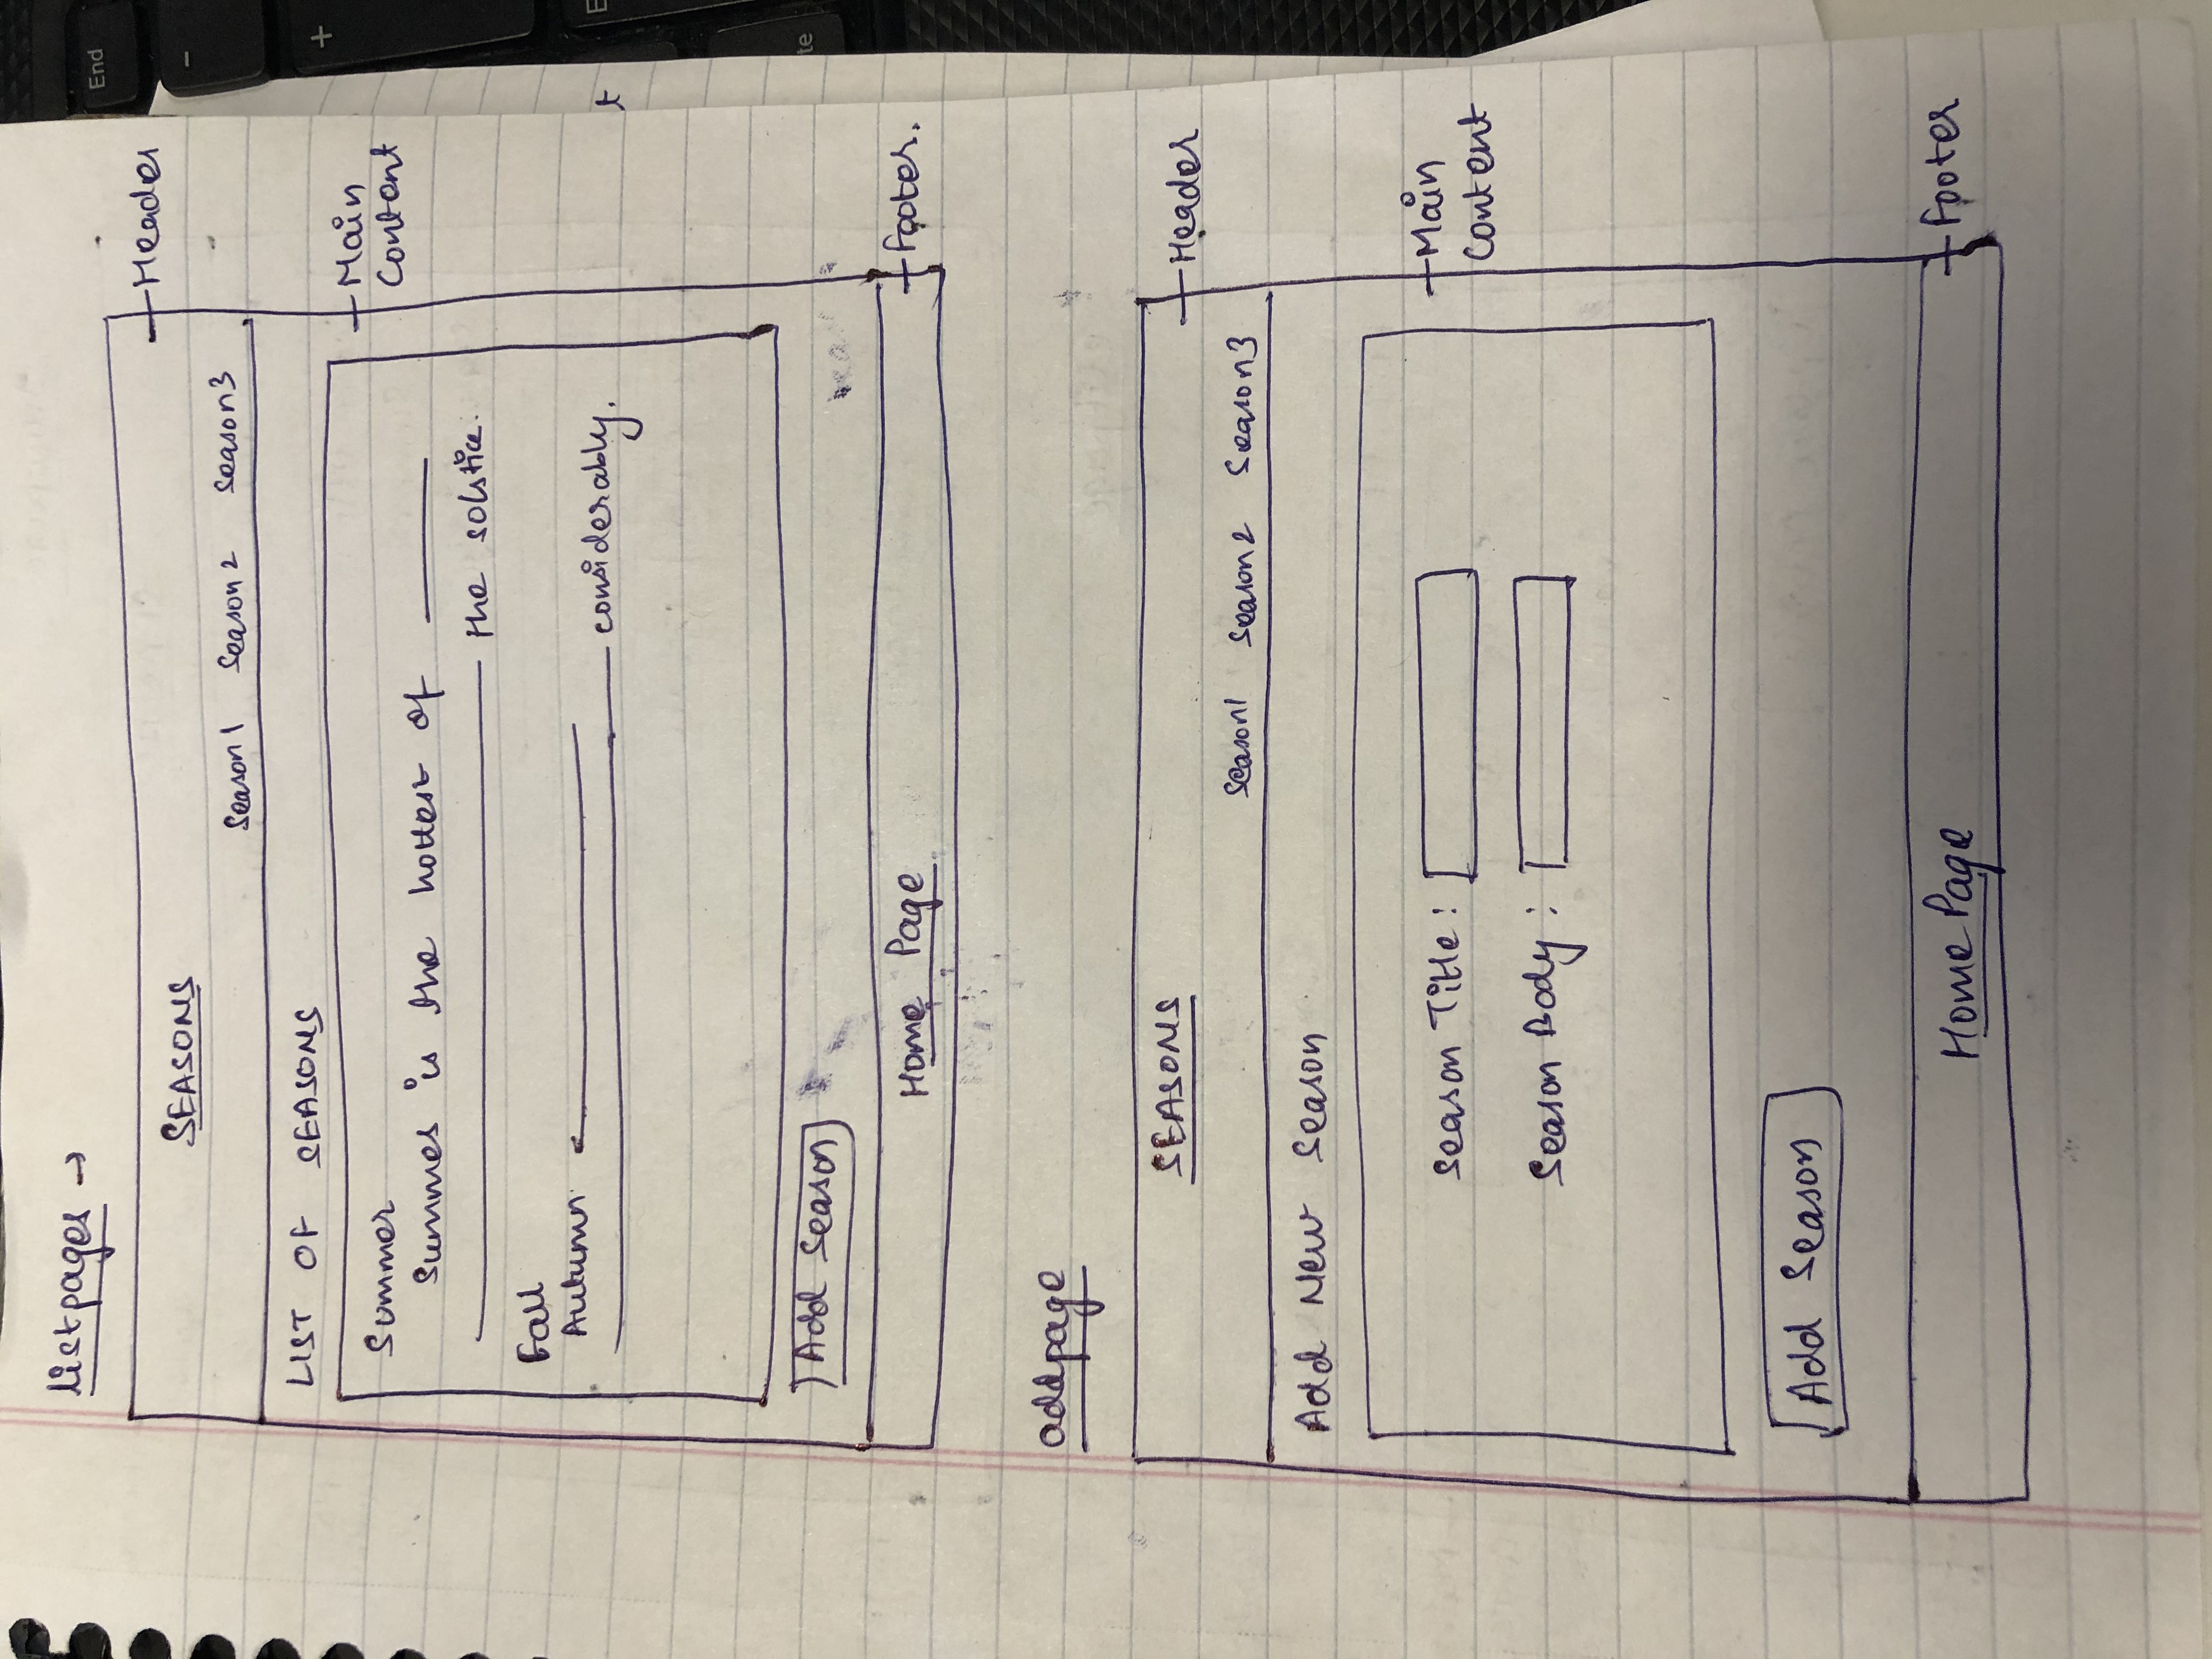 listpages →
SEASONS
Header
Season1 Season2 Season3
LIST OF SEASONS
Main
Content
Summer
Summer is the hottest of
the solstice.
Fall
Autumn
considerably.
Add Season
Home Page
Footer.
addpage
SEASONS
Header
Season1 Season2 Season3
Add New Season
Season Title:
Main
Content
Season Body:
Add Season
Home Page
Footer
End
-
+
E
te
t